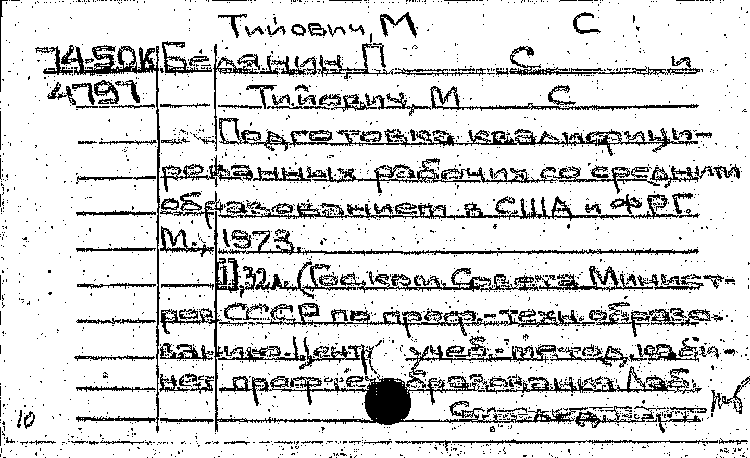 Тийович, М С
74-50К Белянин, П С и
4797 Тийович, М С
Подготовка квалифици-
рованных рабочих со средним
образованием в США и ФРГ.
М., 1973.
[1], 32 л. (Гос. ком. Совета Минист-
ров СССР по проф.-техн. образо-
ванию. Центр. учеб.-метод. каби-
нет профтехобразования. Лаб.
10